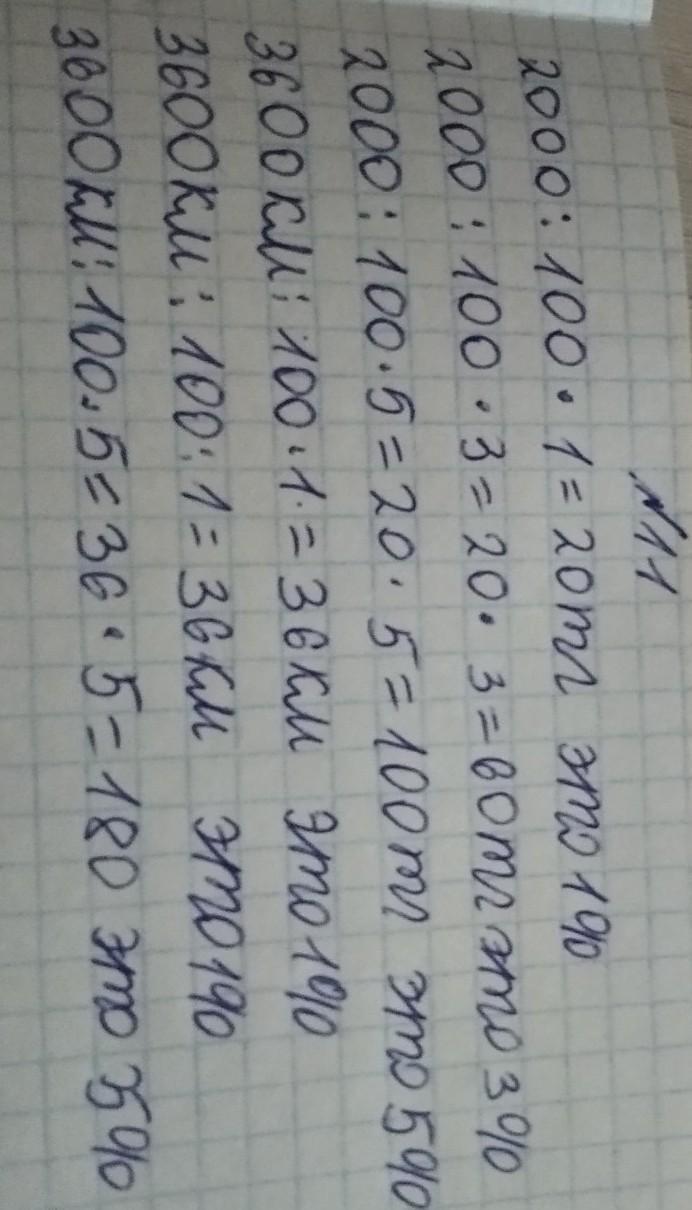 №11
2000 : 100 · 1 = 20тг это 1%
2000 : 100 · 3 = 20 · 3 = 60тг это 3%
2000 : 100 · 5 = 20 · 5 = 100тг это 5%
3600км : 100 · 1 = 36км это 1%
3600км : 100 : 1 = 36км это 1%
3600км : 100 · 5 = 36 · 5 = 180 это 5%